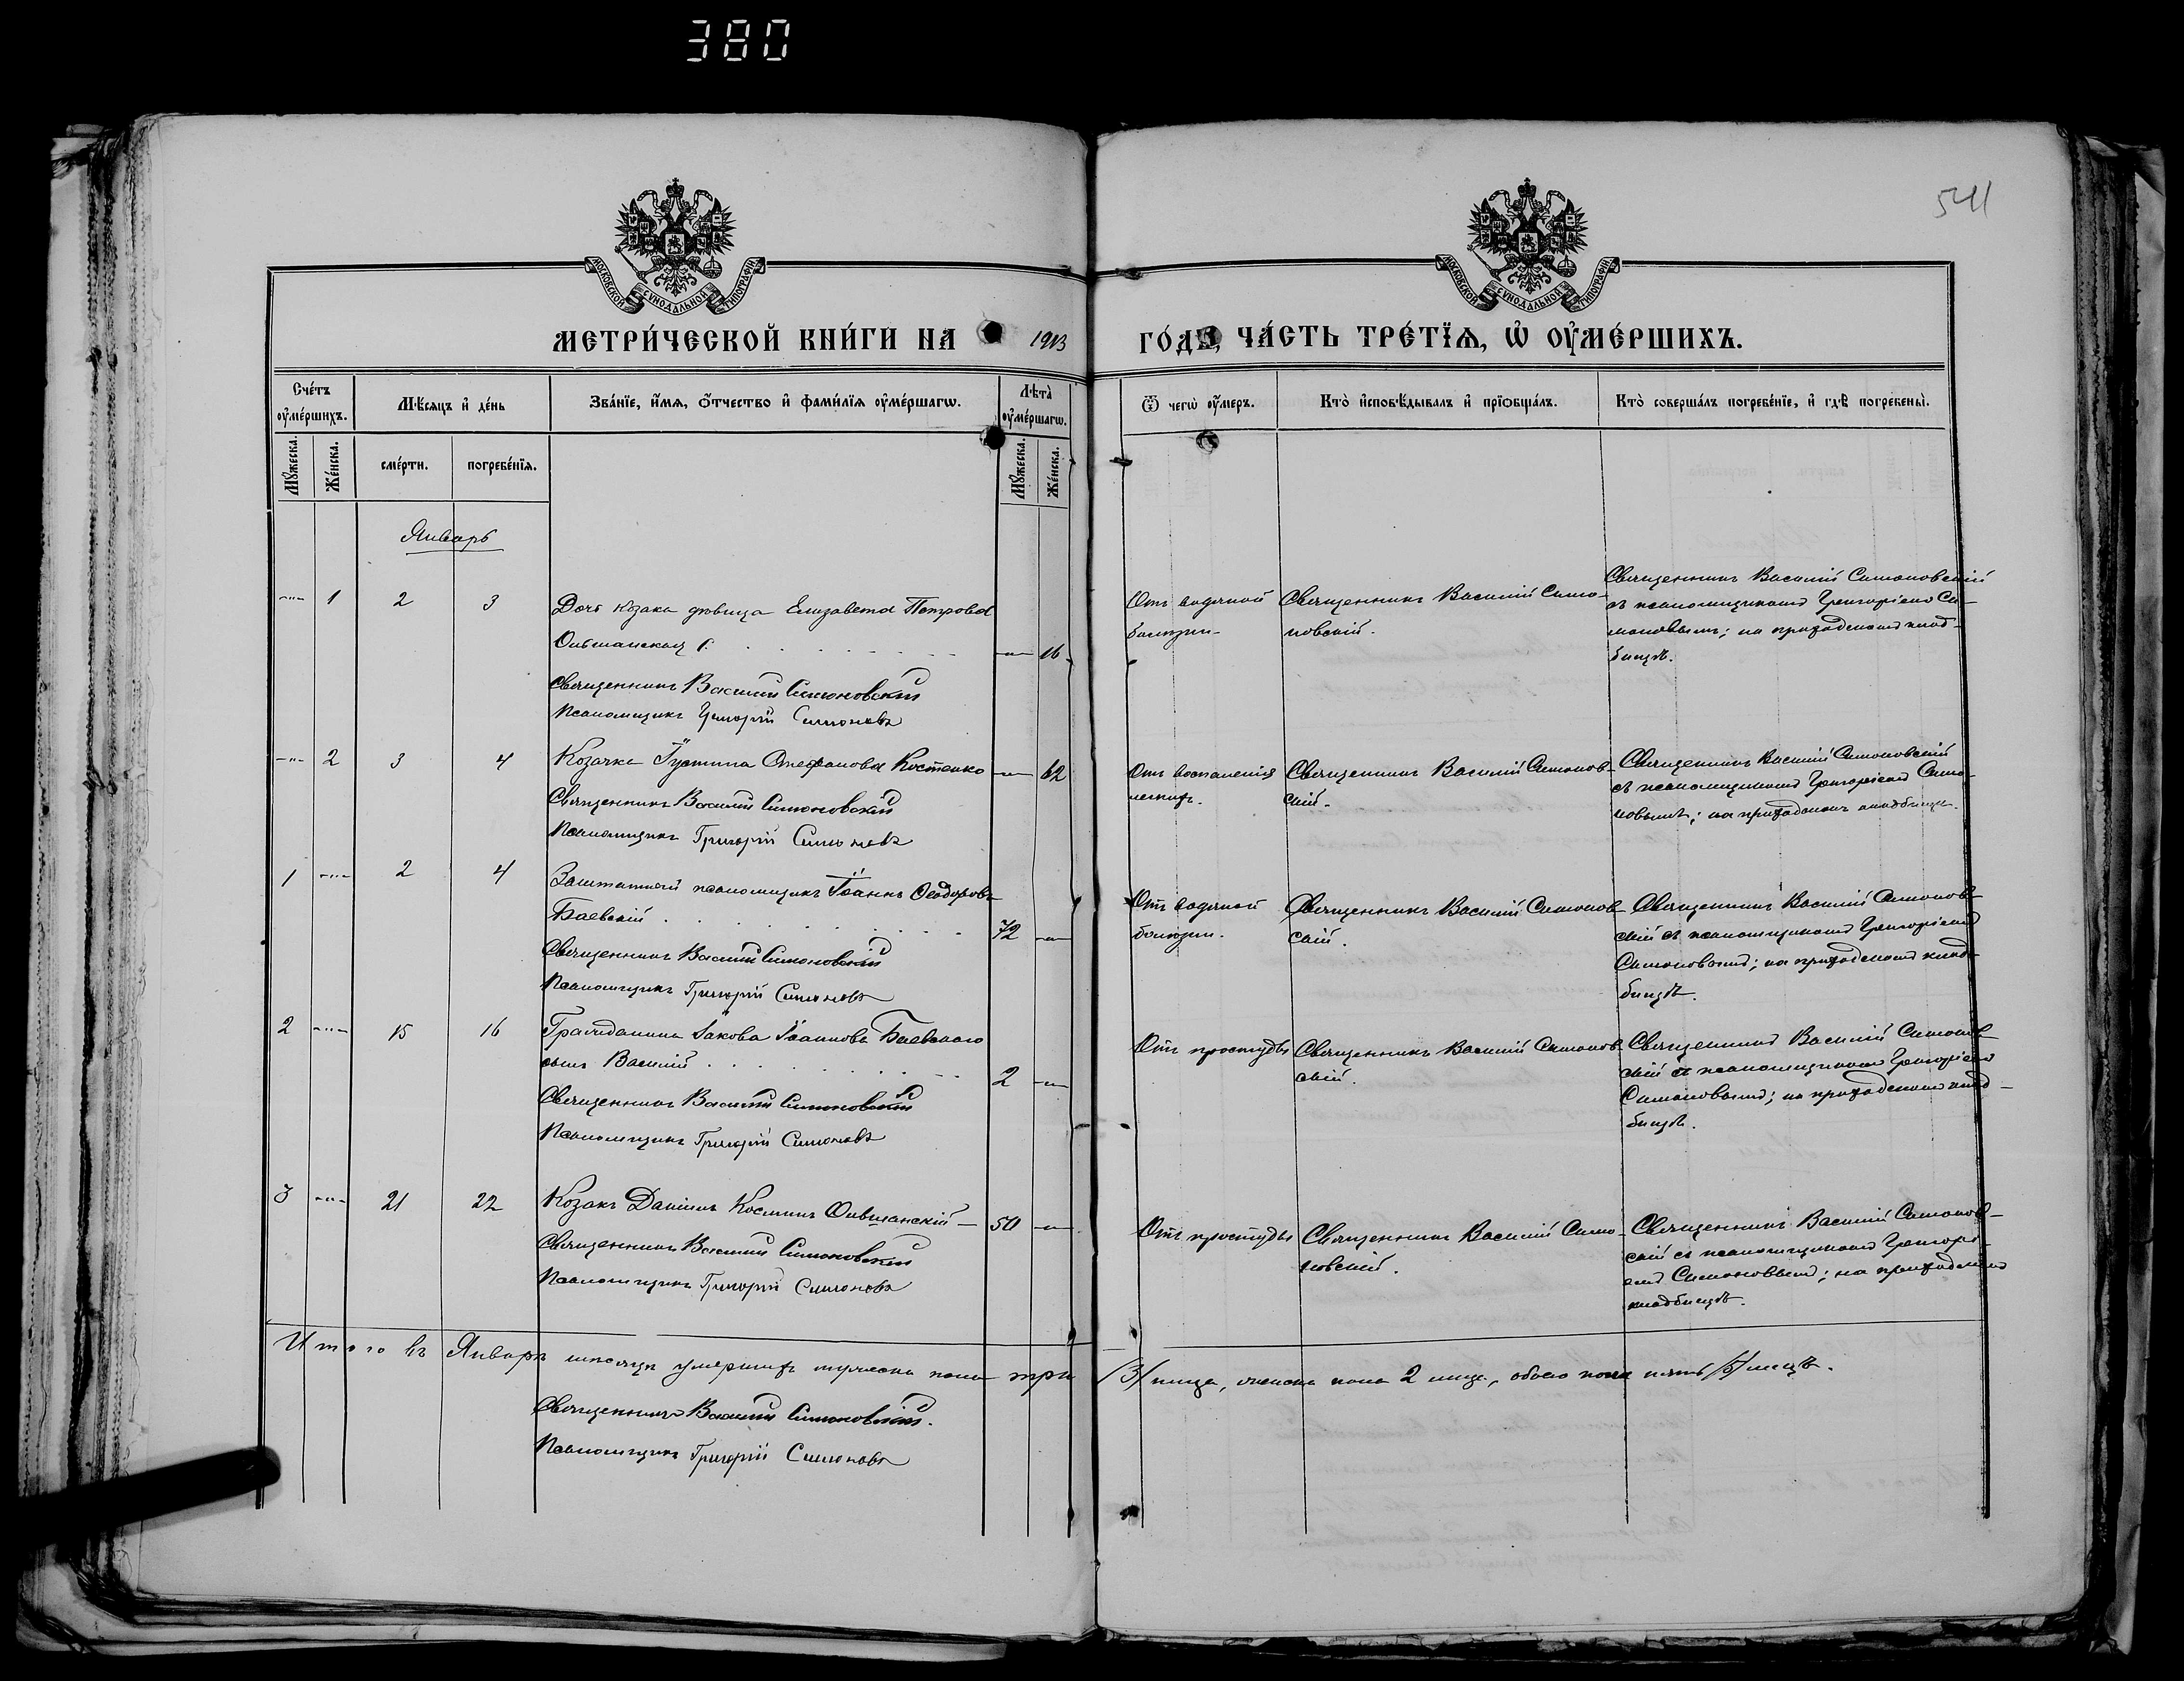 380
541
МОСКОВСКОЙ СѴНОДАЛЬНОЙ ТИПОГРАФІИ
МОСКОВСКОЙ СѴНОДАЛЬНОЙ ТИПОГРАФІИ
МЕТРИ́ЧЕСКОЙ КНИ́ГИ НА 1913 ГО́ДЪ, ЧА́СТЬ ТРЕ́ТЇѦ, Ѡ҆ ОУ҆МЕ́РШИХЪ.
Сче́тъ оу҆ме́ршихъ.
Мѣ́сяцъ и҆ де́нь
Зва́нїе, и҆́мѧ, ѻ҆́тчество и҆ фами́лїѧ оу҆ме́ршагѡ.
Лѣ́та оу҆ме́ршагѡ.
Ѿ чегѡ̀ оу҆́меръ.
Кто̀ и҆сповѣ́дывалъ и҆ прїѡбща́лъ.
Кто̀ соверша́лъ погребе́нїе, и҆ гдѣ̀ погребены̀.
Мꙋ́жеска.
Же́нска.
сме́рти.
погребе́нїѧ.
Мꙋ́жеска.
Же́нска.
Январь
-"- 1 2 3 Дочь козака девица Елизавета Петрова
Ольшанская -"- 16
Священникъ Василій Симоновскій
Псаломщикъ Григорій Симоновъ
Отъ водяной
болѣзни
Священникъ Василій Симо-
новскій.
Священникъ Василій Симоновскій
съ псаломщикомъ Григоріемъ Си-
моновымъ; на приходскомъ клад-
бищѣ.
-"- 2 3 4 Козачка Іустина Стефанова Костенко -"- 62
Священникъ Василій Симоновскій
Псаломщикъ Григорій Симоновъ
Отъ воспаленія
легкихъ.
Священникъ Василій Симонов-
скій.
Священникъ Василій Симоновскій
съ псаломщикомъ Григоріемъ Симо-
новымъ; на приходскомъ кладбищѣ.
1 -"- 2 4 Заштатный псаломщикъ Іоаннъ Ѳеодоровъ
Баевскій 72 -"-
Священникъ Василій Симоновскій
Псаломщикъ Григорій Симоновъ
Отъ водяной
болѣзни.
Священникъ Василій Симонов-
скій.
Священникъ Василій Симонов-
скій съ псаломщикомъ Григоріемъ
Симоновымъ; на приходскомъ клад-
бищѣ.
2 -"- 15 16 Гражданина Іакова Іоаннова Баевскаго
сынъ Василій 2 -"-
Священникъ Василій Симоновскій
Псаломщикъ Григорій Симоновъ
Отъ простуды
Священникъ Василій Симонов-
скій.
Священникъ Василій Симонов-
скій съ псаломщикомъ Григоріемъ
Симоновымъ; на приходскомъ клад-
бищѣ.
3 -"- 21 22 Козакъ Даніилъ Косминъ Ольшанскій 50 -"-
Священникъ Василій Симоновскій
Псаломщикъ Григорій Симоновъ
Отъ простуды
Священникъ Василій Симо-
новскій.
Священникъ Василій Симонов-
скій съ псаломщикомъ Григорі-
емъ Симоновымъ; на приходскомъ
кладбищѣ.
Итого въ Январѣ мѣсяцѣ умершихъ мужеска пола три /3/ лица, женска пола 2 лица, обоего пола пять /5/ лицъ.
Священникъ Василій Симоновскій.
Псаломщикъ Григорій Симоновъ